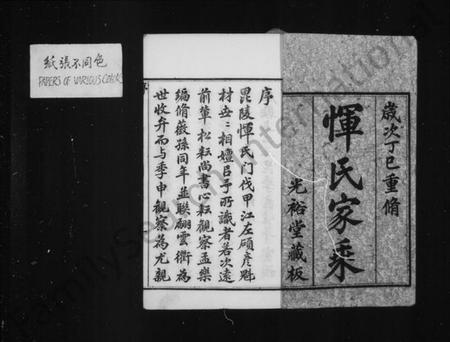 紙張不同色
PAPERS OF VARIOUS COLORS
歲次丁巳重脩
惲氏家乘
光裕堂藏板
序
毘陵惲氏門伐甲江左碩彥魁
材世二相嬗吕予所識者若次遠
前輩松耘尚書心耘觀察孟樂
編脩薇孫同年並聯翩雲衢為
世收弁而与季申觀察為尤親
FamilySearch International